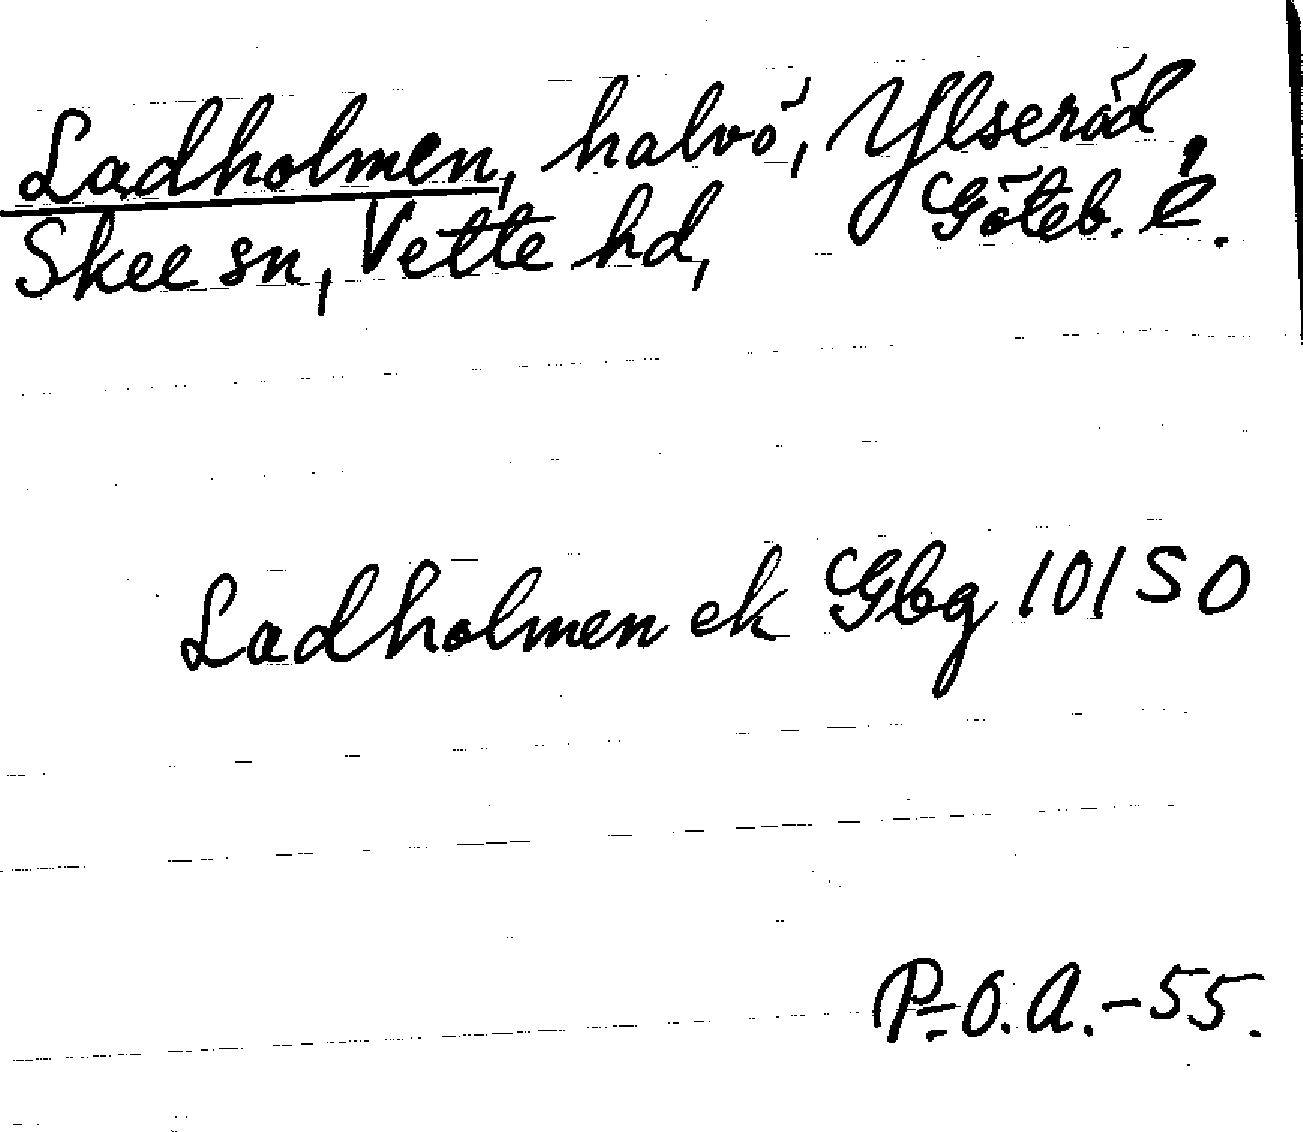 Ladholmen, halvö, Ylseröd,
Skee sn, Vette hd, Göteb. l.
Ladholmen ek Gbg 10150
P-O. A. -55.